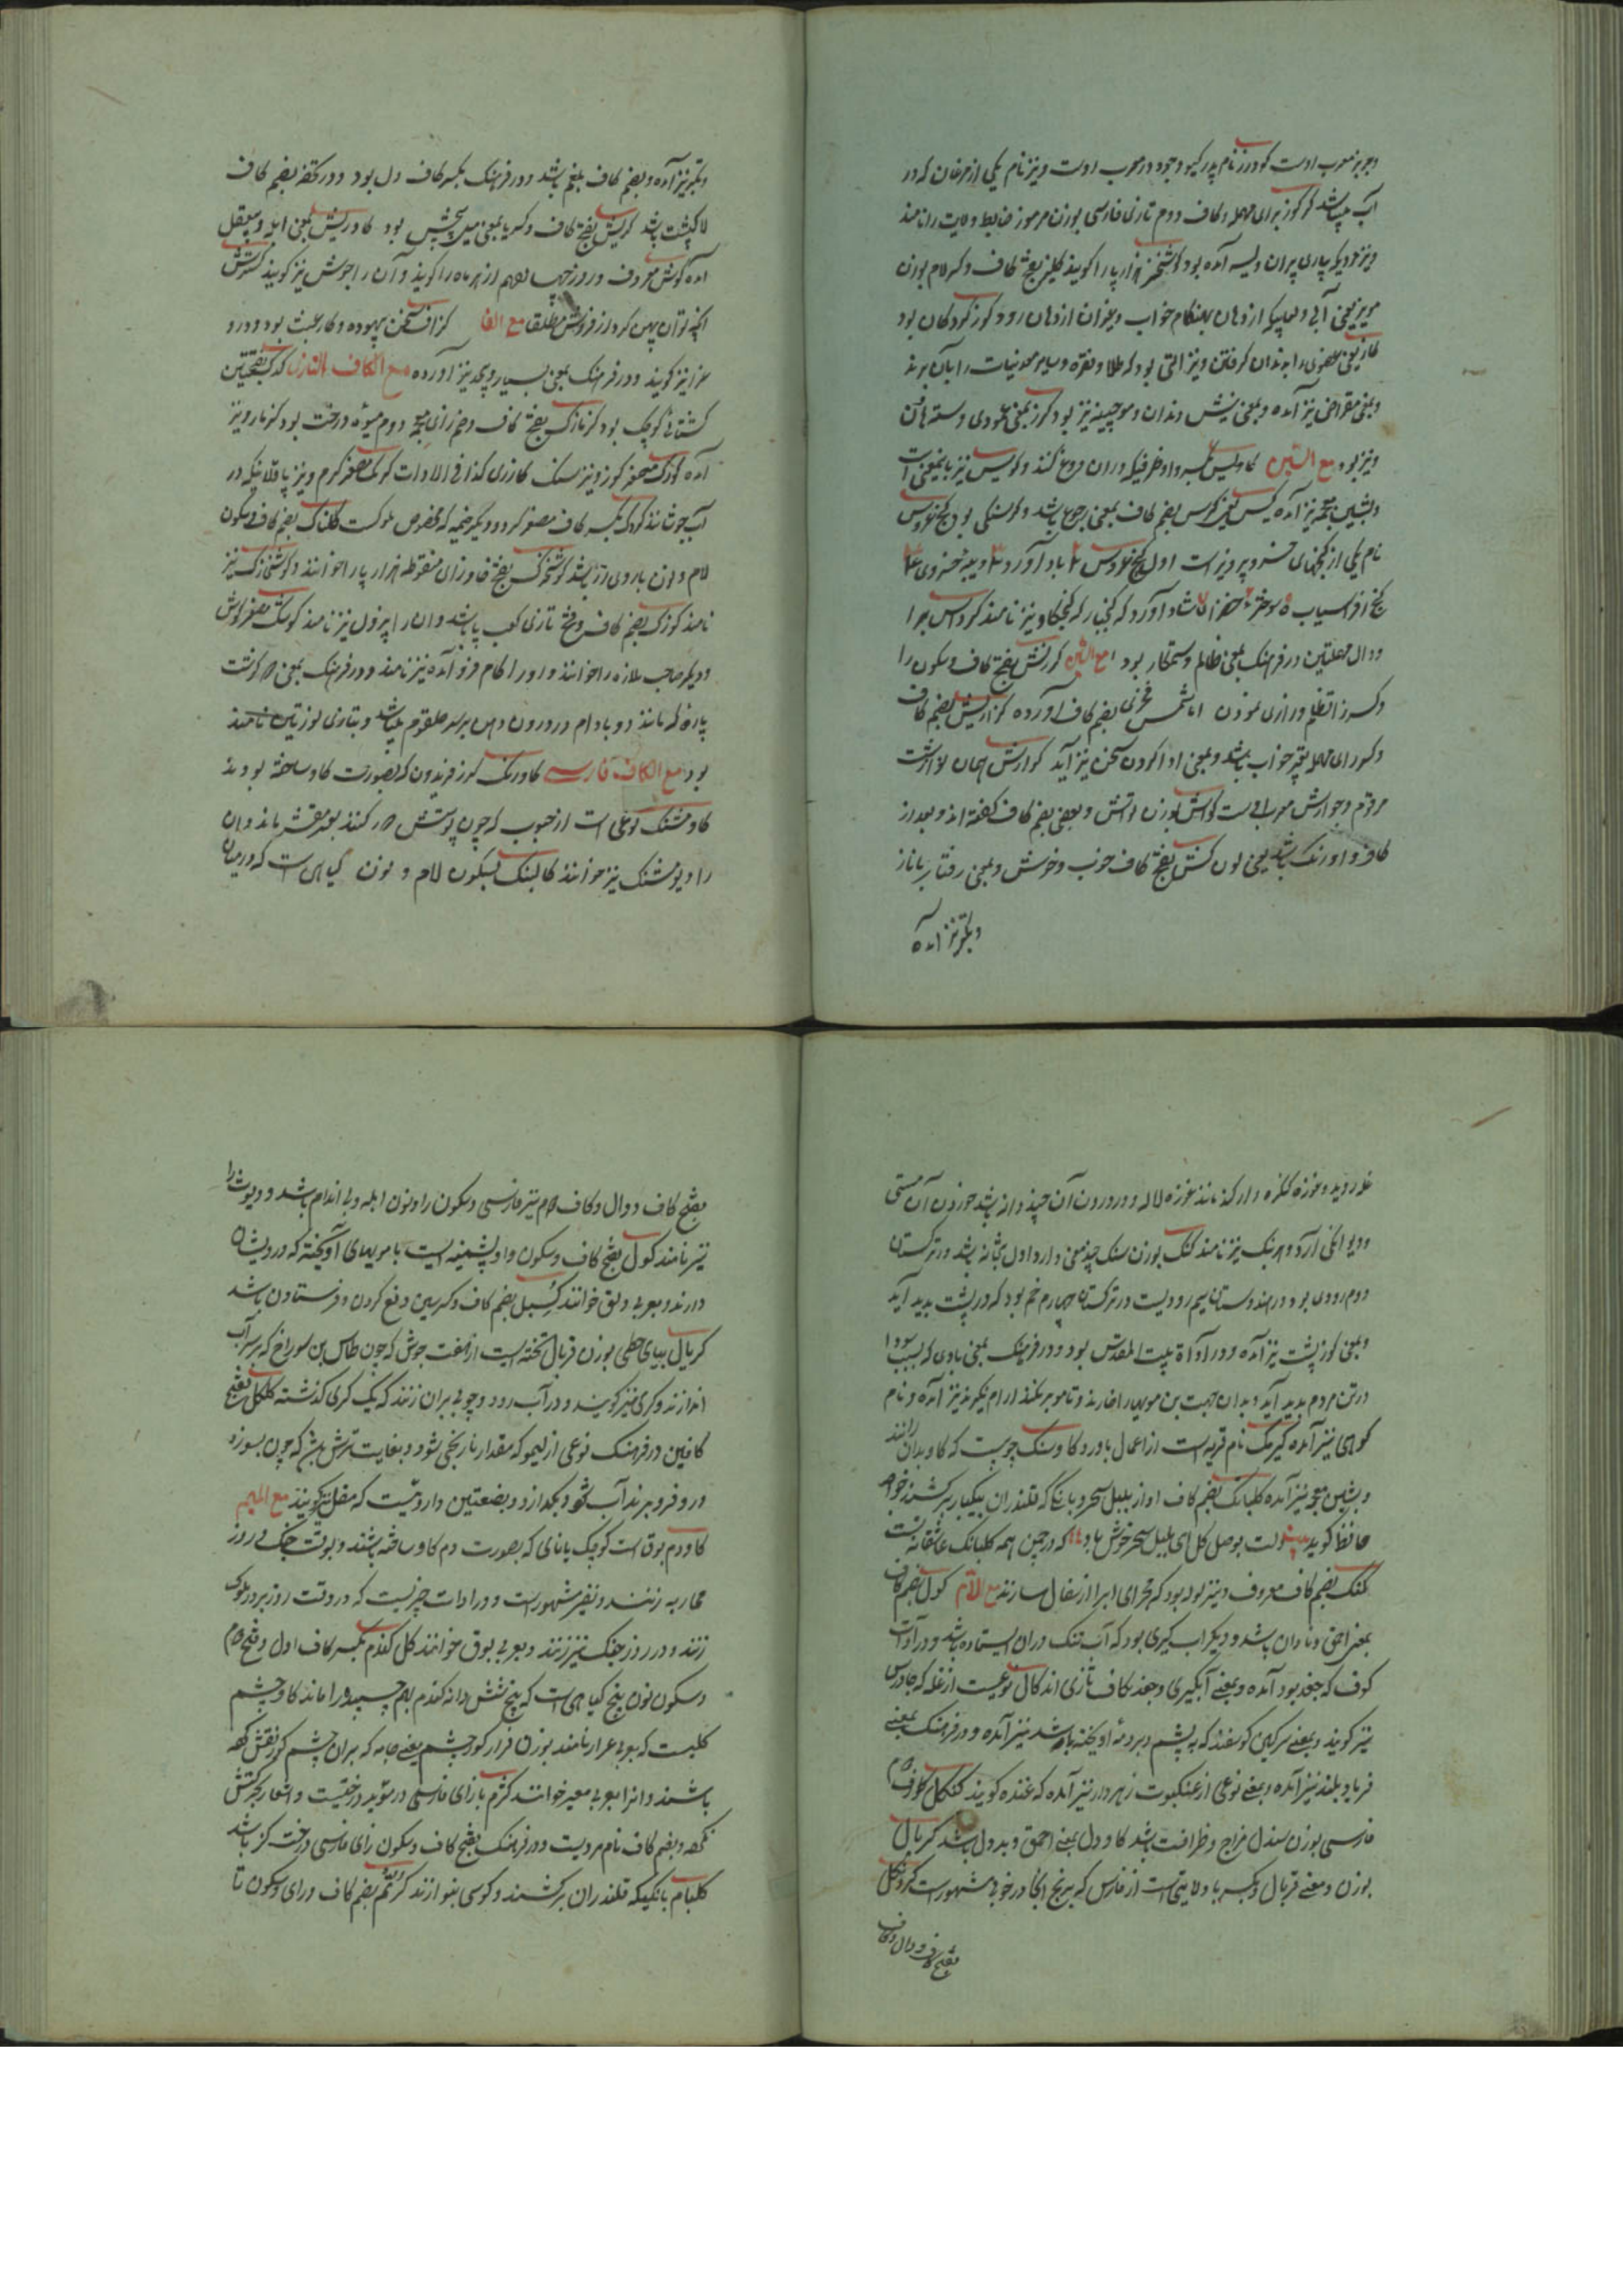 وجوبز معرب اوست کودرز نام پدر کیو وجودرز معرب اوست ونیز نام یکی از مرغان که در
آب میباشد کرکوز برای مهمله وکاف دوم تازی فارسی بوزن مرموز ضابط ولایت را نامند
ونیز نزدیک پاری پیران ولیسه آمده بود کوشخز هزارپا را کویند کلیز بفتح کاف وکسر لام بوزن
مویز یعنی آبی ولعابیکه از دهان بهنکام خواب ویغران از دهان رود کوز کودکان بود
کاز یعنی عضوی را بدندان کرفتن ونیز آلتی بود که طلا ونقره وسایر معدنیات را بآن برند
وبمعنی مقراض نیز آمده وبمعنی نیش دندان وموچینه نیز بود کرز بمعنی عمودی دسته آهن
ونیز بود مع السین کاولیس بکسر واو ظرفیکه دران دوغ کنند وکولیس نیز باینمعنی است
وبشین معجمه نیز آمده کیس یعنی کوس بضم کاف بمعنی رجوع باشد وکرسنکی بود کنج عروس
نام یکی از کنجهای خسرو پرویز است اول کنج عروس ۲ باد آورد ۳ دیبه خسروی ۴
کنج افراسیاب ۵ سوخته ۶ خضرا ۷ شاد آورد که کنج بار که کنجکاو نیز نامند کرداس برا
ودال مهملتین در فرهنک بمعنی ظالم وستمکار بود مع الشین کرنش بفتح کاف وسکون را
وکسر نون تعظیم ورازی نمودن اما شمس فخری بضم کاف آورده کزارش بضم کاف
وکسر رای مهمله تعبیر خواب باشد وبمعنی ادا کردن سخن نیز آید کوارش همان کوارشت
مرقوم وجوارش معرب اوست کواش بوزن لواش وبعضی بضم کاف کفته اند وبعد از
کاف واو رنک باشد یعنی لون کش بفتح کاف خوب وخوش وبمعنی رفتار بناز
وبکبر نیز آمده
وبکبر نیز آمده وبضم کاف بلغم باشد ودر فرهنک بکسر کاف دل بود ودر تحفه بضم کاف
لاک پشت باشد کریش بفتح کاف وکسر یا بمعنی میل بخشش بود کاوریش بمعنی ابله وبیعقل
آمده کوش معروف وروز چهاردهم از هر ماه را کویند وآن را جوش نیز کویند کسترش
آنچه توان پهن کرد از فروش مطلقا مع الفا کزاف سخن بیهوده وکار عبث بود ودرو
سرا نیز کویند ودر فرهنک بمعنی بسیار وبیحد نیز آورده مع الکاف التازی کدک بفتحتین
کشتی کوچک بود کزنازک بفتح کاف وضم زای معجمه دوم میوه درخت بود کزمازو نیز
آمده کوزک مصغر کوز ونیز سنک کازری کذا فی الادات کرمک مصغر کرم ونیز باقلائیکه در
آب جوشانند کردک بکسر کاف مصغر کرد ودیکر خیمه که مخصوص ملوکست کلناک بضم کاف وسکون
لام ونون باروی دژ باشد کوشخزک بفتح خا وزای منقوطه هزارپا را خوانند وکوشتی زک نیز
نامند کوزک بضم کاف وفتح تازی کعب پا باشد وآن را بزول نیز نامند کوشک مصغر کوش
ودیکر صاحب ملازه را خوانند واو را کام فرو آمده نیز نامند ودر فرهنک بمعنی دو کوشت
پاره که مانند دو بادام در درون دهن بر سر حلقوم میباشد وبتازی لوزتین نامند
بود مع الکاف فارسی کاورنک کرز فریدون که بصورت کاو ساخته بودند
کاومشنک نوعی است از حبوب که چون پوستش دور کنند بعدس مقشر ماند وآن
را دیومشنک نیز خوانند کالنک بسکون لام ونون کیاهی است که در میان
غله روید وغوزه کنکره دار کند مانند غوزه لاله ودر درون آن چند دانه باشد خوردن آن مستی
ودیوانکی آرد وهرنک نیز نامند کنک بوزن سنک چند معنی دارد اول بتخانه باشد در ترکستان
دوم رودی بود در هندوستان سیم رودیست در ترکستان چهارم خم بود که در پشت پدید آید
وبمعنی کوز پشت نیز آمده ودر ادات بیت المقدس بود ودر فرهنک بمعنی بادی که بسبب سودا
در تن مردم پدید آید وبدان جهت بن مویها را خارد وتا مو بر نکند آرام نکیرد نیز آمده ونام
کوهی نیز آمده کیرنک نام قریه است از اعمال باورد کاوسنک چوبیست که کاو بدان رانند
وبشین معجمه نیز آمده کلبانک بضم کاف آواز بلبل سحر وبانکی که قلندران بیکبار برکشند خواجه
حافظ کوید بیت دلت بوصل کل ای بلبل سحر خوش باد که در چمن همه کلبانک عاشقانه تست
کنک بضم کاف معروف ونیز لوله بود که مجرای آب را از سفال سازند مع اللام کول بضم کاف
بمعنی احمق ونادان باشد ودیکر آب کیری بود که آب تنک دران ایستاده باشد ودر ادات
کوف که جغد بود آمده وبمعنی آبکیری وجغد بکاف تازی اند کال نوعیست از غله که جاورس
نیز کویند وبمعنی سرکین کوسفند که به پشم ودنبه او یخته باشد نیز آمده ودر فرهنک بمعنی
فریاد بلند نیز آمده وبمعنی نوعی از عنکبوت زهردار نیز آمده که غنده کویند کنکل بکاف دوم
فارسی بوزن سندل مزاح وظرافت باشد کاو دل بمعنی احمق وبددل باشد کربال
بوزن ومعنی غربال وبکسر با ولایتی است از فارس که برنج آنجا در خوبی مشهور است کردنکل
بفتح کاف ودال وکاف
بفتح کاف ودال وکاف دوم نیز فارسی وسکون را ونون ابله وبی اندام باشد ودیوث را
نیز نامند کول بفتح کاف وسکون واو پشمینه ایست با مویهای آویخته که درویشان
دارند وبعربی دلق خوانند کسیل بضم کاف وکسر سین دفع کردن وفرستادن باشد
کریال بیای حطی بوزن غربال تخته ایست از هفت جوش که چون طاس بن سوراخ که بر سر آب
اندازند وکری نیز کویند ودر آب رود وچوبی بران زنند که یک کری کذشته کلکل بفتح
کافین در فرهنک نوعی از لیمو که مقدار نارنجی شود وبغایت ترش باشد که چون بسوزد
درو فرو برند آب شود وبکدازد وبضمتین داروئیست که مقل نیز کویند مع المیم
کاودم بوق است کوچک یا نائی که بصورت دم کاو ساخته باشند وبوقت جنک در روز
محاربه زنند ونفیر مشهور است ودر ادات چیزیست که در وقت روز بر در ملوک
زنند ودر روز جنک نیز زنند وبعربی بوق خوانند کل کندم بکسر کاف اول وفتح دوم
وسکون نون بیخ کیاهی است که پنج شش دانه کندم بهم چسبیده را ماند کاوچشم
کلیست که بعربی عرار نامند بوزن فرار کورچشم یعنی جامه که بران چشم کور نقش کرده
باشند وآنرا بعربی معین خوانند کزم بازای فارسی در موید درختیست واشعار بحرکتش
نکرده وبضم کاف نام مردیست ودر فرهنک بفتح کاف وسکون زای فارسی درخت کز باشد
کلبام بانکیکه قلندران برکشند وکوسی بنوازند کرستم بضم کاف ورای وسکون تا